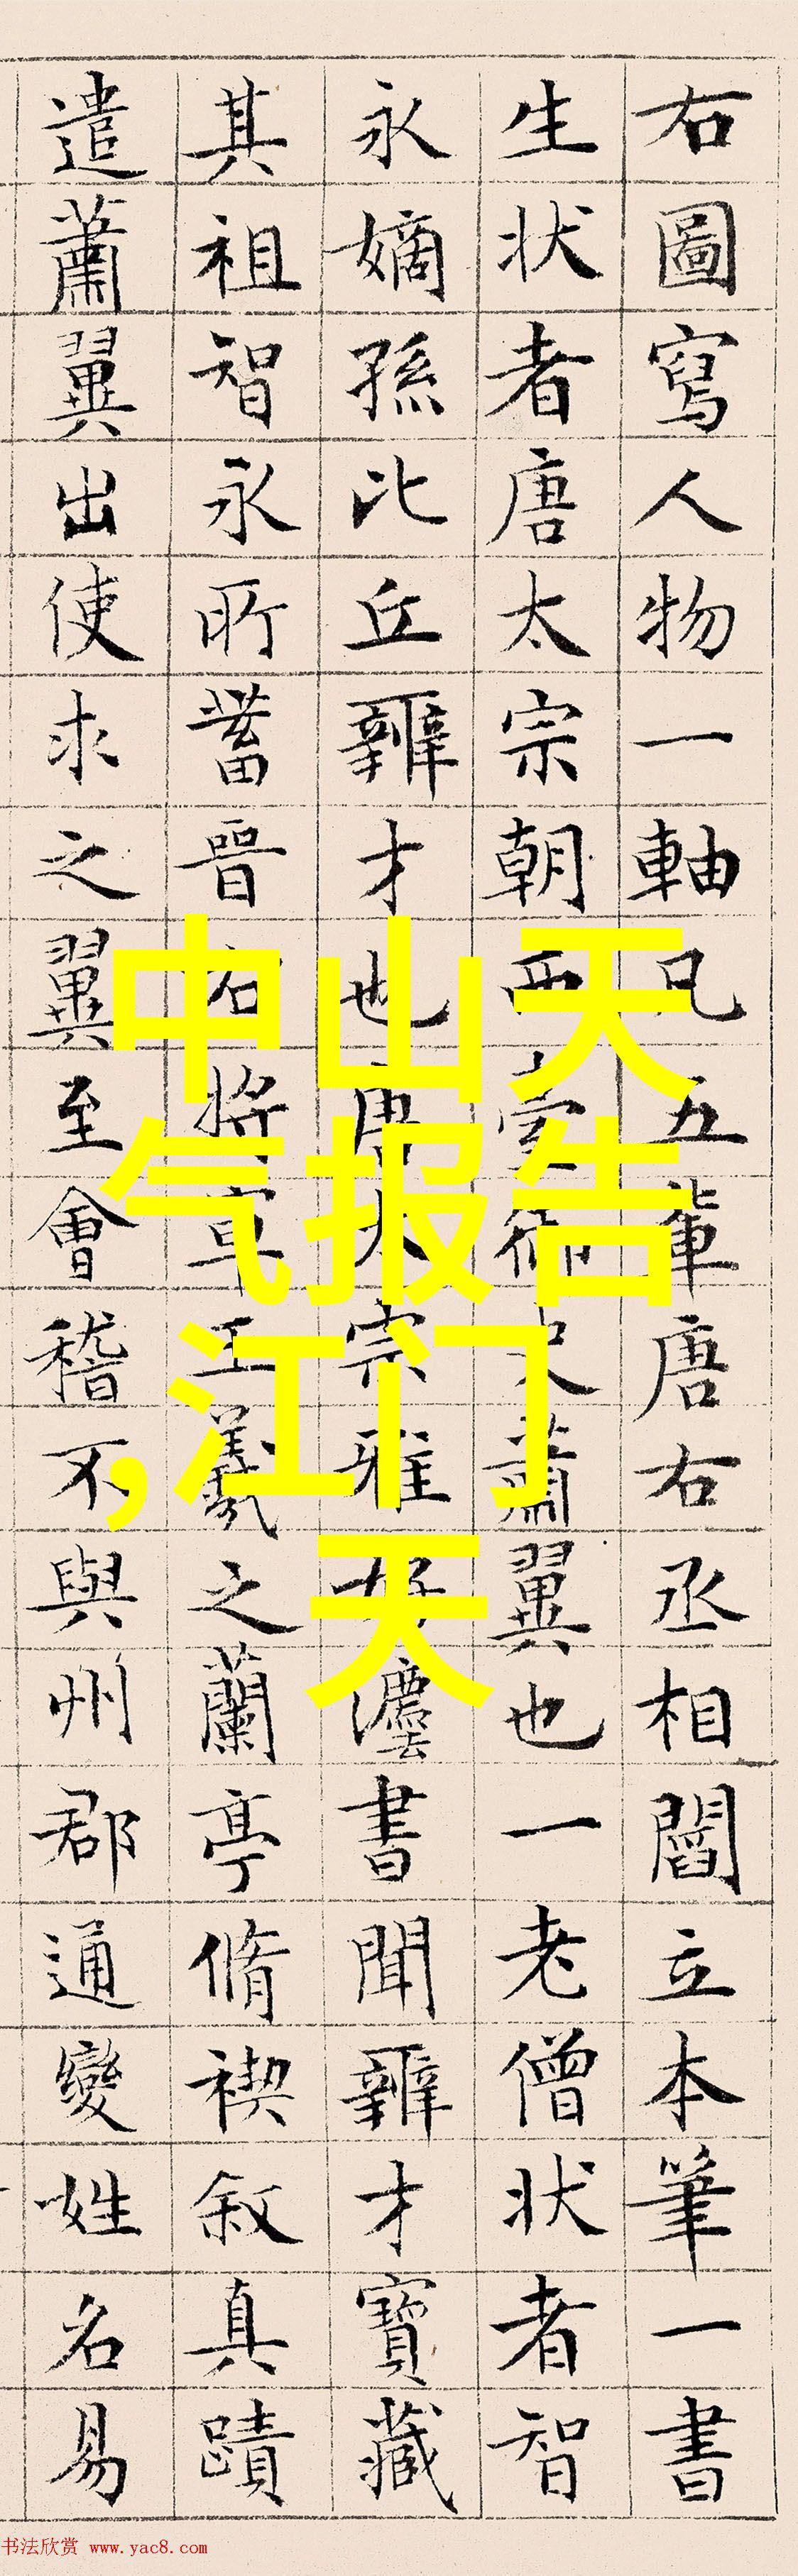 右圖寫人物一軸凡五輩唐右丞相閻立本筆一書
生状者唐太宗朝西臺御史蕭翼也一老僧状者智
永嫡孫比丘辯才也唐太宗雅好灋書聞辯才寶藏
其祖智永所蓄晉右將軍王羲之蘭亭脩禊叙真蹟
遣蕭翼出使求之翼至會稽不與州郡通變姓名易
中山天
气报告
,江门
天
书法欣赏 www.yac8.com